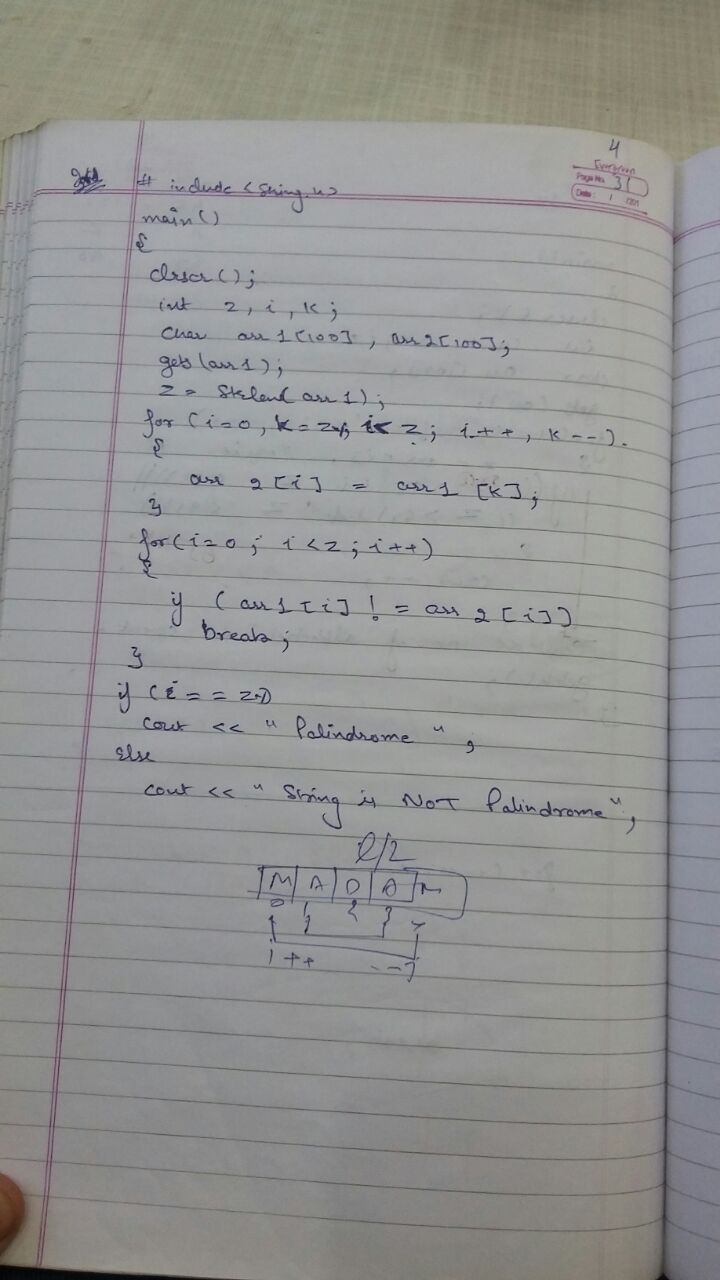 4
Evergreen
Page No. 31
Date: / /201
# include <string.h>
main()
{
clrscr();
int z, i, k;
char arr1[100], arr2[100];
gets(arr1);
z = strlen(arr1);
for (i=0, k=z-1, i<z; i++, k--).
{
arr2[i] = arr1[k];
}
for(i=0; i<z; i++)
{
if (arr1[i] != arr2[i])
break;
}
if (i==z)
cout << " Palindrome ";
else
cout << " String is NOT Palindrome";
l/2
M A D A M
0 1 2 3
i++ --j